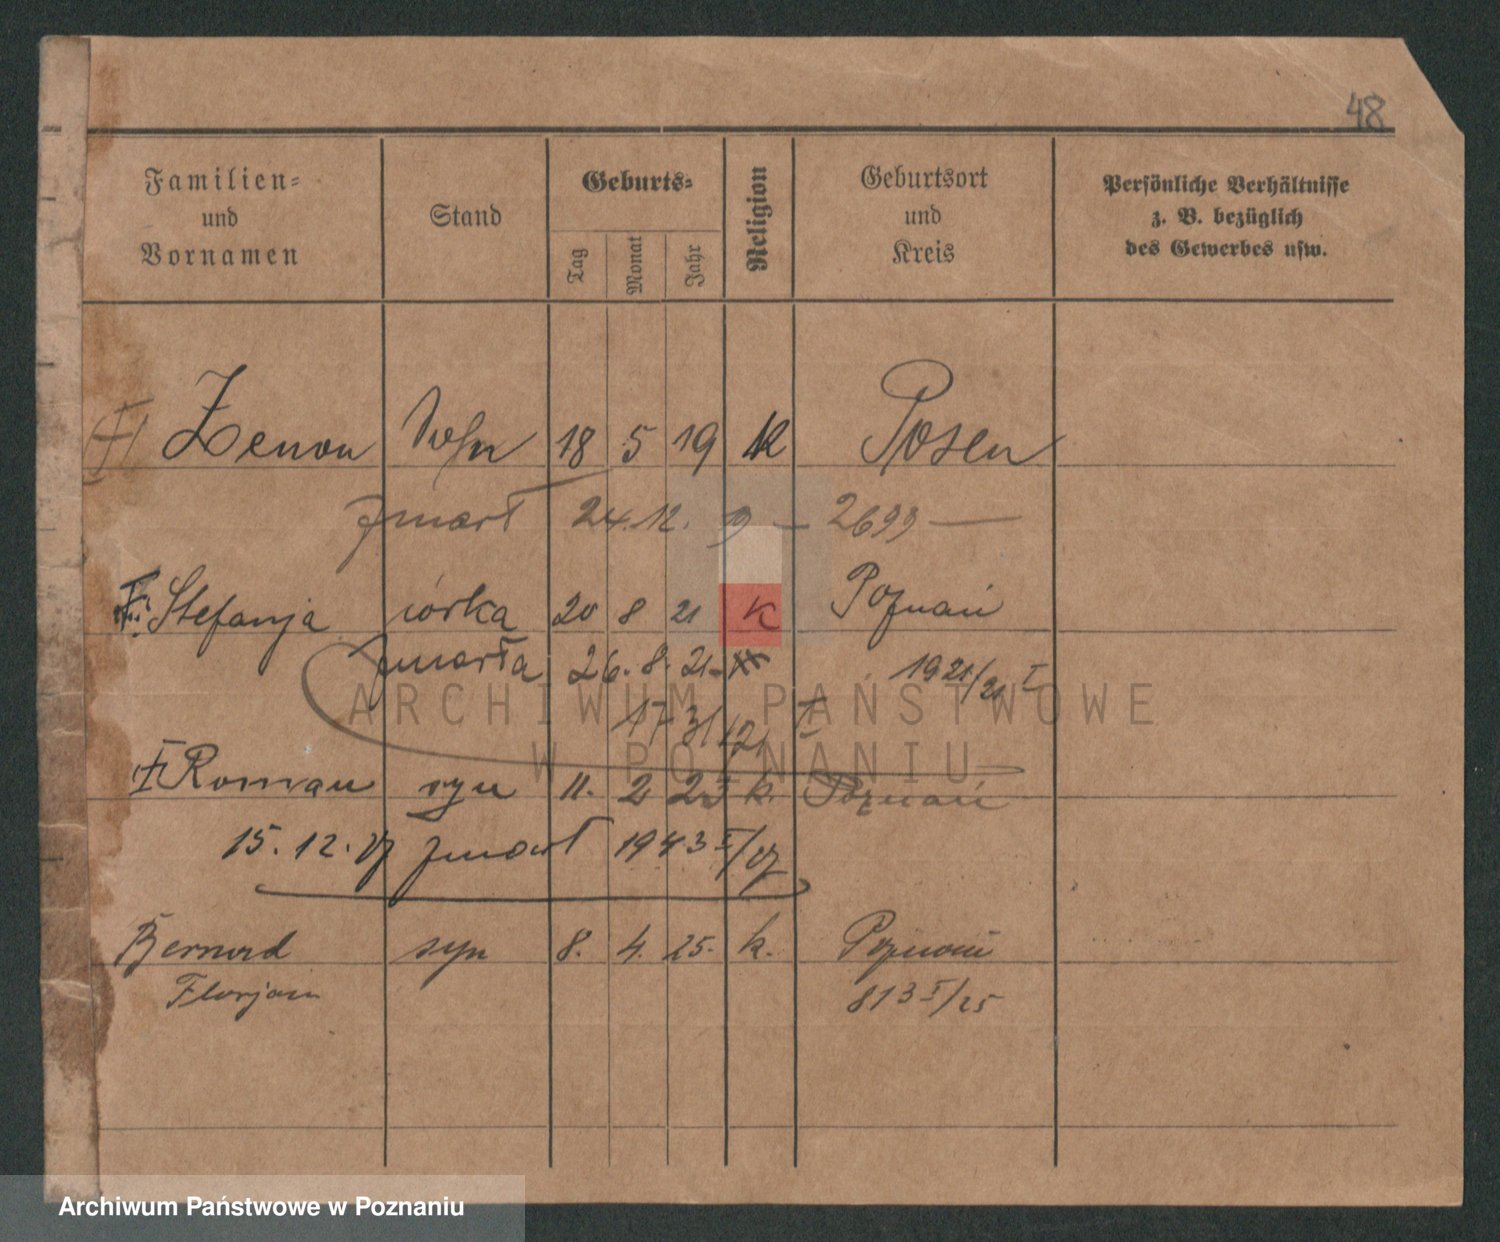 48
Familien=
und
Vornamen
Stand
Geburts=
Tag
Monat
Jahr
Religion
Geburtsort
und
Kreis
Persönliche Verhältnisse
z. B. bezüglich
des Gewerbes usw.
Zenon Sohn 18 5 19 K Posen
zmarł 24. 12. 19 — 2699 —
Stefanja córka 20 8 21 K Poznań
zmarła 26. 8. 21 1921/21 I
ARCHIWUM PAŃSTWOWE
W POZNANIU
Roman syn 11. 2 23 k. Poznań
15. 12. 27 zmarł 1943 I/27
Bernard syn 8. 4. 25. k. Poznań
Florjan 813 I/25
Archiwum Państwowe w Poznaniu